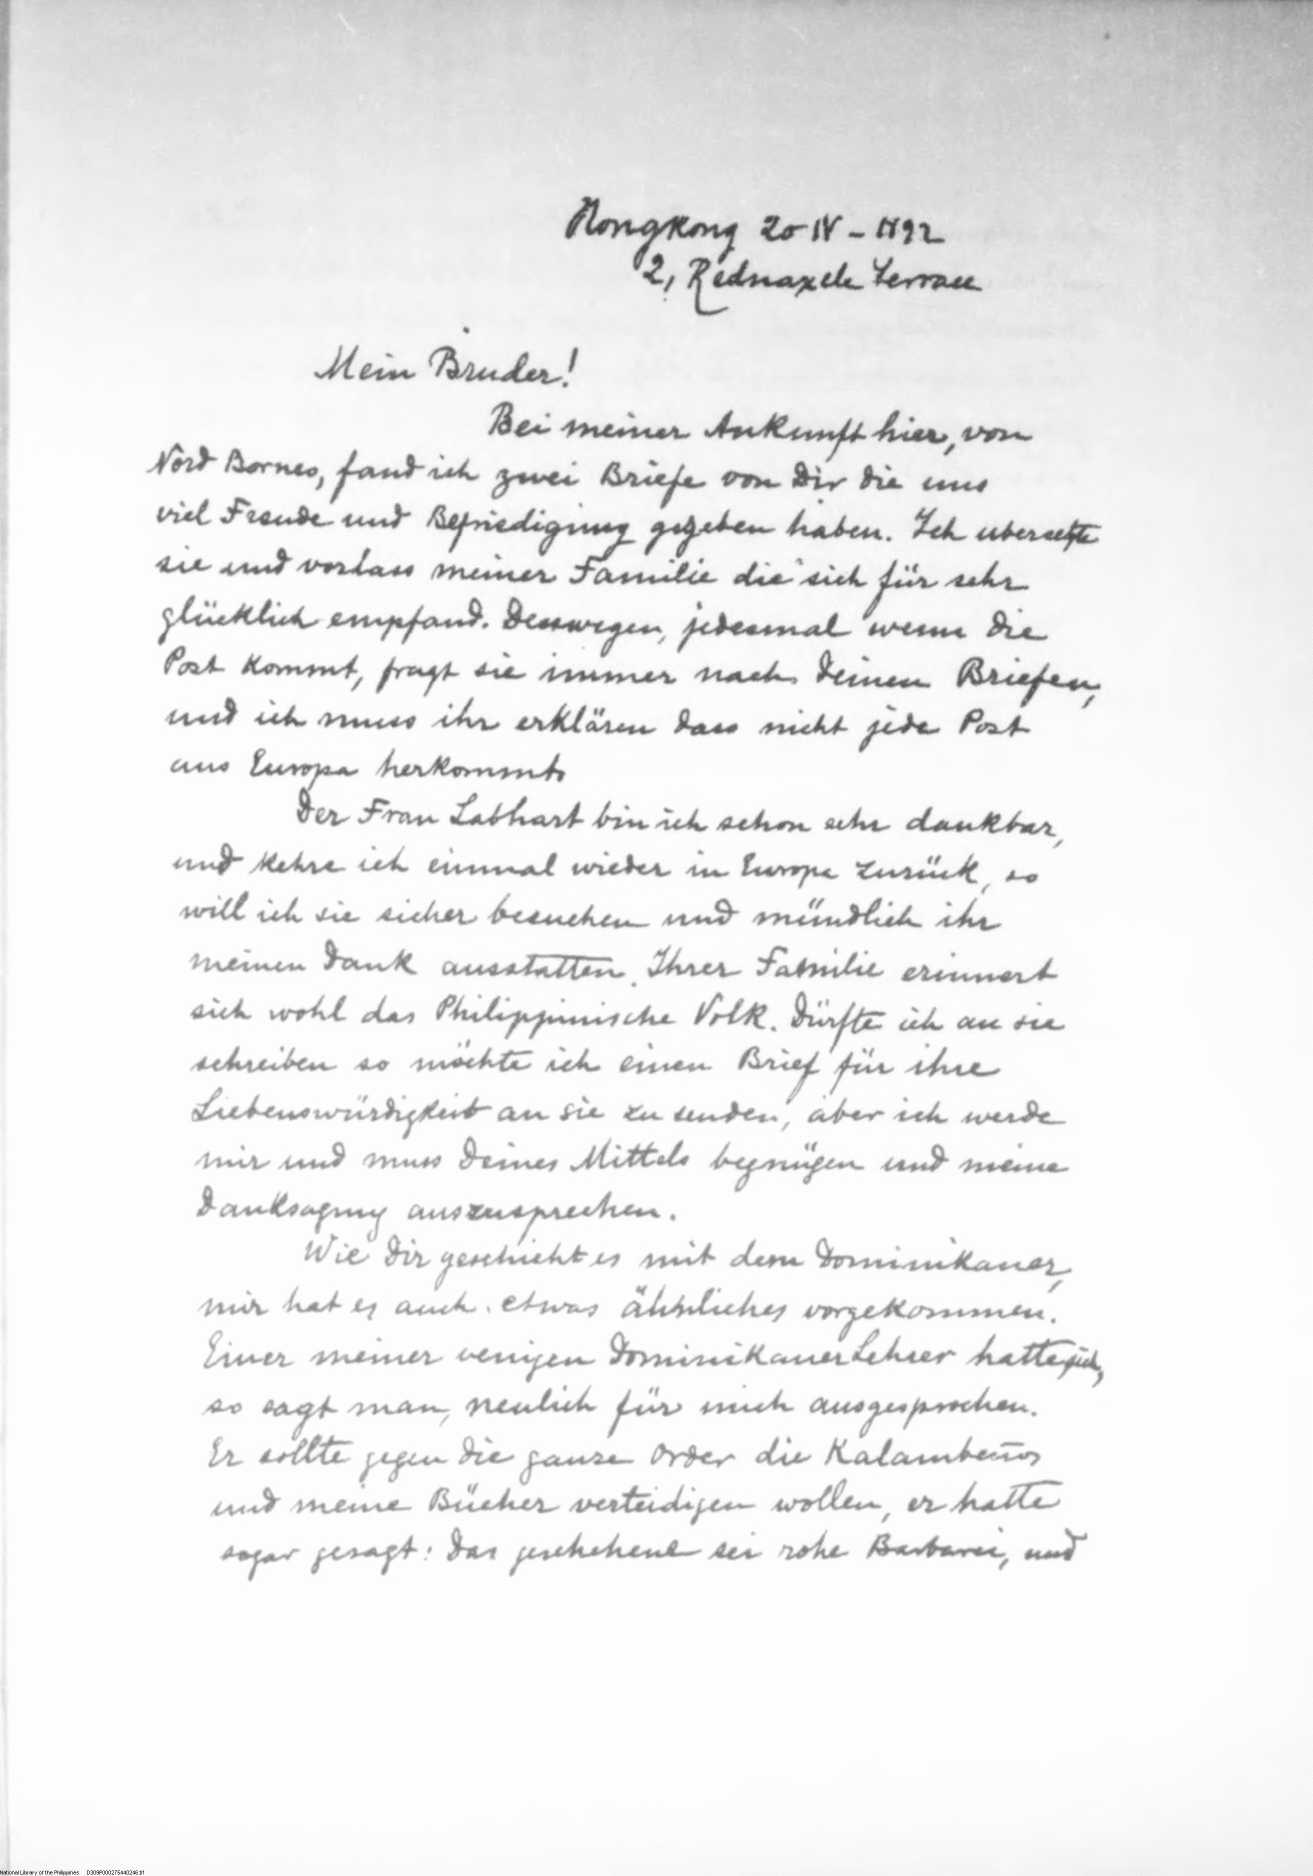 Hongkong 20 IV - 1892
2, Rednaxela Terrace
Mein Bruder!
Bei meiner Ankunft hier, von
Nord Borneo, fand ich zwei Briefe von Dir die uns
viel Freude und Befriedigung gegeben haben. Ich ubersetzte
sie und vorlass meiner Familie die sich für sehr
glücklich empfand. Desswegen, jedesmal wenn die
Post kommt, fragt sie immer nach Deinen Briefen,
und ich muss ihr erklären dass nicht jede Post
aus Europa herkommt.
Der Frau Labhart bin ich schon sehr dankbar,
und kehre ich einmal wieder in Europa zurück, so
will ich sie sicher besuchen und mündlich ihr
meinen Dank ausstatten. Ihrer Familie erinnert
sich wohl das Philippinische Volk. Dürfte ich an sie
schreiben so möchte ich einen Brief für ihre
Liebenswürdigkeit an sie zu senden, aber ich werde
mir und muss Deines Mittels begnügen und meine
Danksagung auszusprechen.
Wie Dir geschieht es mit dem Dominikaner,
mir hat es auch etwas ähnliches vorgekommen.
Einer meiner wenigen Dominikaner Lehrer hatte sich,
so sagt man, neulich für mich ausgesprochen.
Er sollte gegen die ganze Order die Kalambeños
und meine Bücher verteidigen wollen, er hatte
sogar gesagt: das geschehene sei rohe Barbarei, und
National Library of the Philippines D309P000275440246.tif